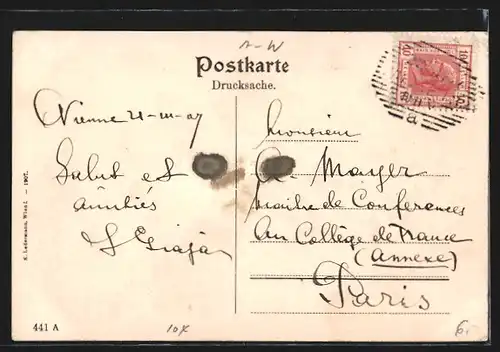 A-W
Postkarte
Drucksache.
Vienne 21-III-07
Salut et
amitiés
Monsieur
Mayer
maître de Conferences
au Collège de France
(Annexe)
Paris
K. Ledermann, Wien I. — 1907.
441 A
10x
6.-